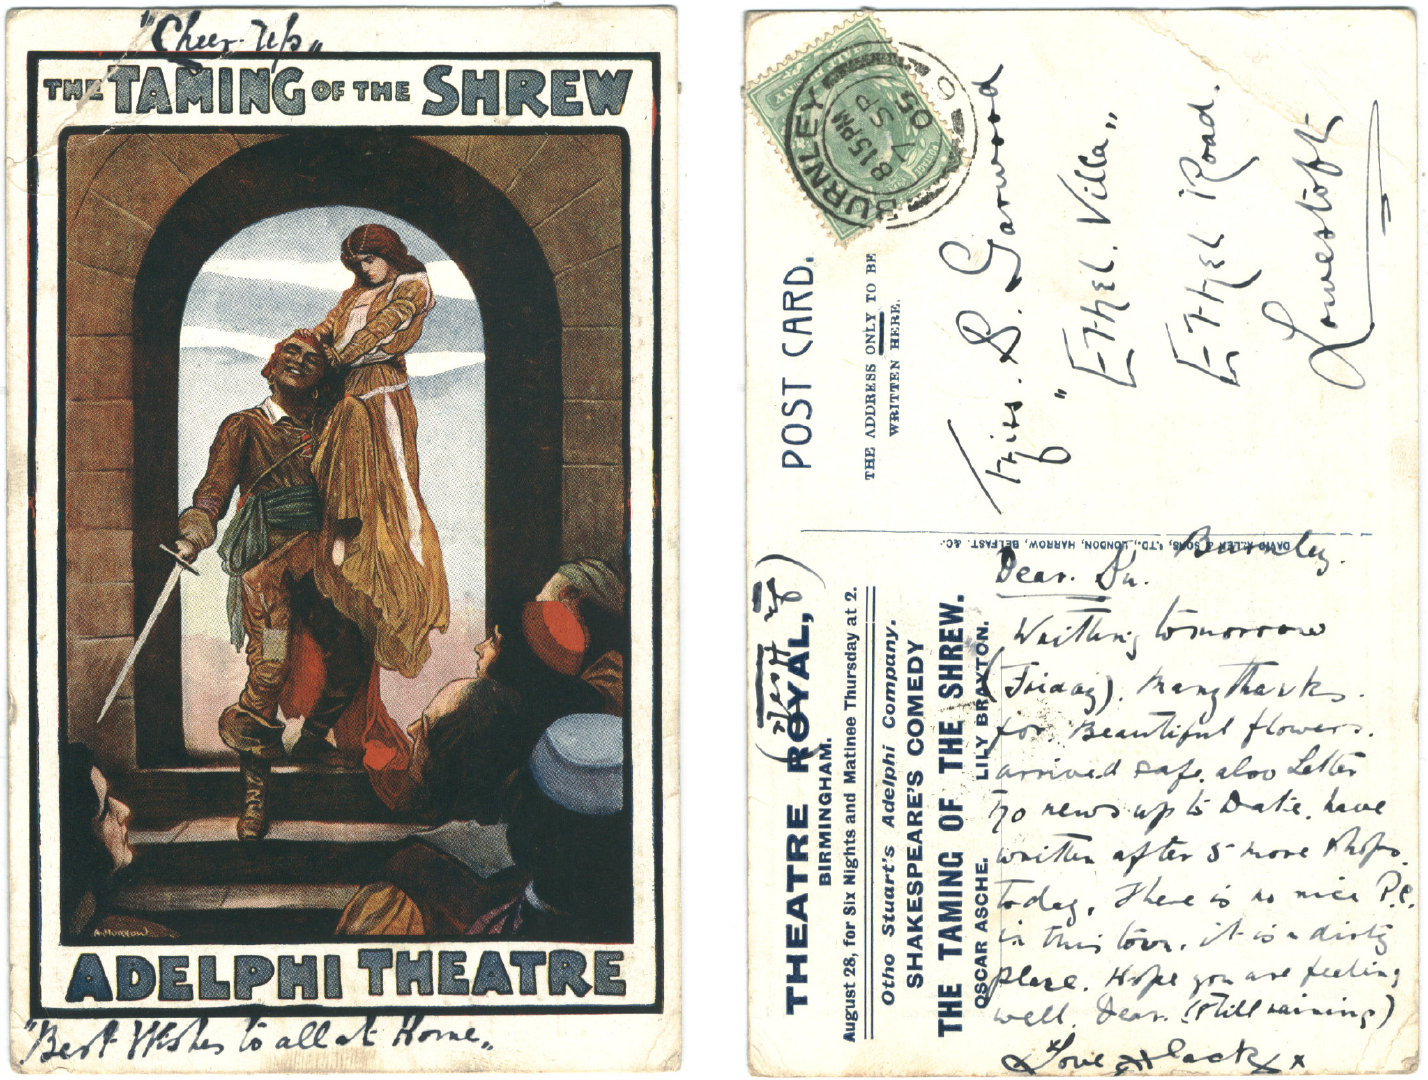 "Cheer-Up"
THE TAMING OF THE SHREW
A. MORROW
ADELPHI THEATRE
"Best Wishes to all at Home"
BURNLEY
8 15 PM
7 SP
05
POST CARD.
THE ADDRESS ONLY TO BE
WRITTEN HERE.
Miss. S. Garwood
"Ethel. Villa"
Ethel Road.
Lowestoft
DAVID ALLEN & SONS, LTD., LONDON, HARROW, BELFAST. &C.
THEATRE ROYAL,
BIRMINGHAM.
August 28, for Six Nights and Matinee Thursday at 2.
Otho Stuart's Adelphi Company.
SHAKESPEARE'S COMEDY
THE TAMING OF THE SHREW.
OSCAR ASCHE. LILY BRAYTON.
Burnley.
Dear.
Writing tomorrow
(Friday). Many thanks.
for Beautiful flowers.
arrived safe. also Letter
No news up to Date. have
written after 5 more Shops.
today. There is no nice P.C.
in this town. it is a dirty
place. Hope you are feeling
well. Dear. (still raining)
Love Jack x x